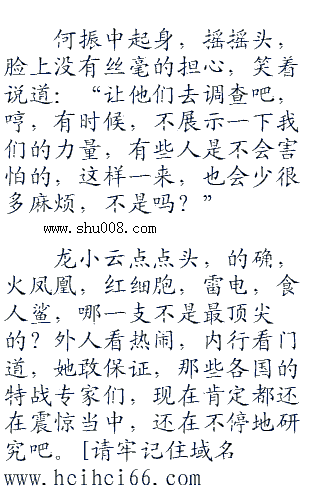 何振中起身，摇摇头，
脸上没有丝毫的担心，笑着
说道：“让他们去调查吧，
哼，有时候，不展示一下我
们的力量，有些人是不会害
怕的，这样一来，也会少很
多麻烦，不是吗？”
www.shu008.com
龙小云点点头，的确，
火凤凰，红细胞，雷电，食
人鲨，哪一支不是最顶尖
的？外人看热闹，内行看门
道，她敢保证，那些各国的
特战专家们，现在肯定都还
在震惊当中，还在不停地研
究吧。[请牢记住域名
www.hcihci66.com